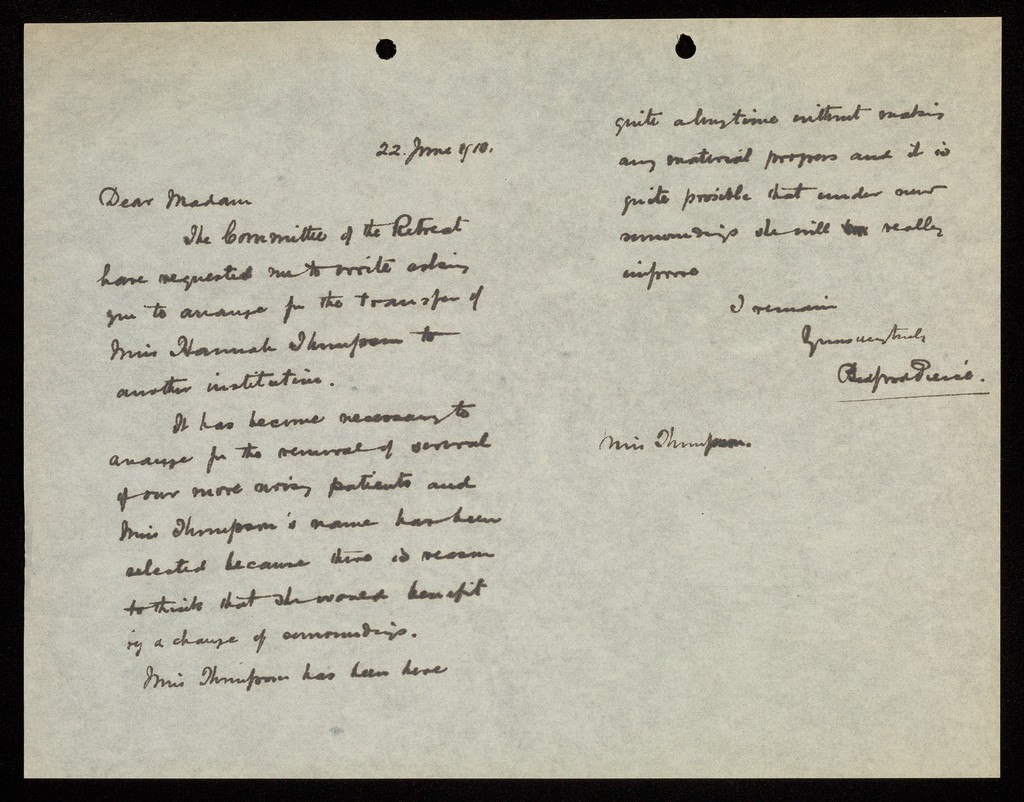 22. June 1910.
Dear Madam
The Committee of the Retreat
have requested me to write asking
you to arrange for the transfer of
Miss Hannah Thompson to
another institution.
It has become necessary to
arrange for the removal of several
of our more noisy patients and
Miss Thompson's name has been
selected because there is reason
to think that she would benefit
by a change of surroundings.
Miss Thompson has been here
quite a long time without making
any material progress and it is
quite possible that under new
surroundings she will really
improve
I remain
Yours very truly
Bedford Pierce.
Miss Thompson.